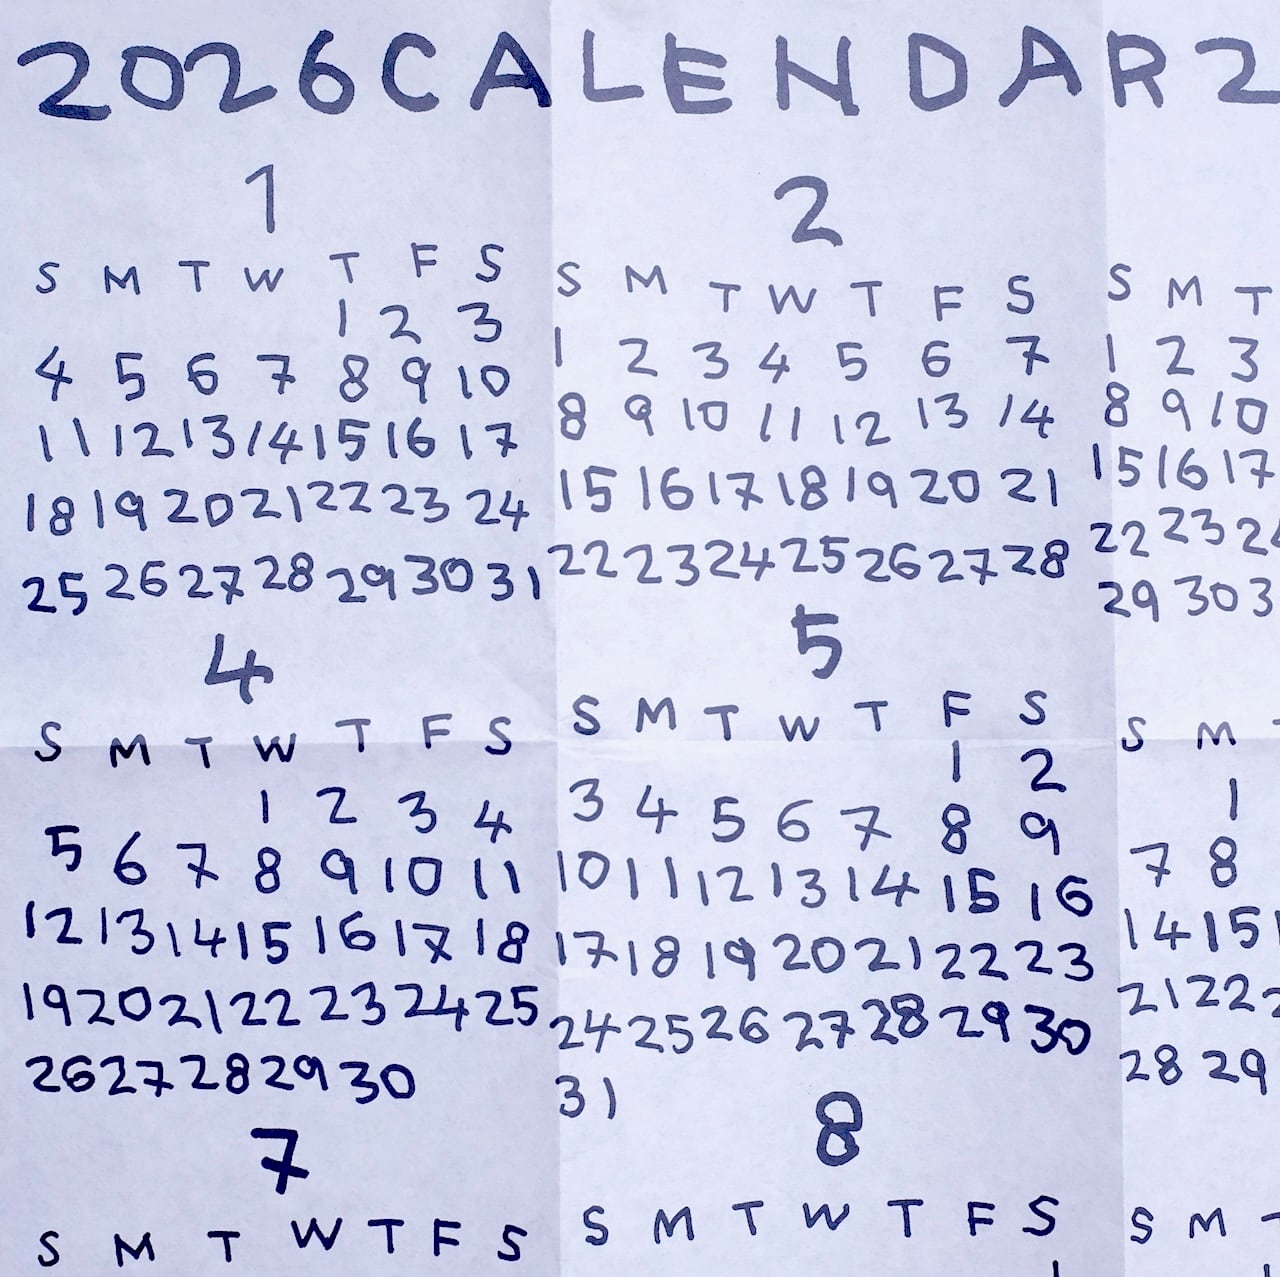 2026 CALENDAR 2
1
S M T W T F S
1 2 3
4 5 6 7 8 9 10
11 12 13 14 15 16 17
18 19 20 21 22 23 24
25 26 27 28 29 30 31
2
S M T W T F S
1 2 3 4 5 6 7
8 9 10 11 12 13 14
15 16 17 18 19 20 21
22 23 24 25 26 27 28
S M T
1 2 3
8 9 10
15 16 17
22 23 24
29 30 3
4
S M T W T F S
1 2 3 4
5 6 7 8 9 10 11
12 13 14 15 16 17 18
19 20 21 22 23 24 25
26 27 28 29 30
5
S M T W T F S
1 2
3 4 5 6 7 8 9
10 11 12 13 14 15 16
17 18 19 20 21 22 23
24 25 26 27 28 29 30
31
S M
1
7 8
14 15
21 22
28 29
7
S M T W T F S
8
S M T W T F S
S M